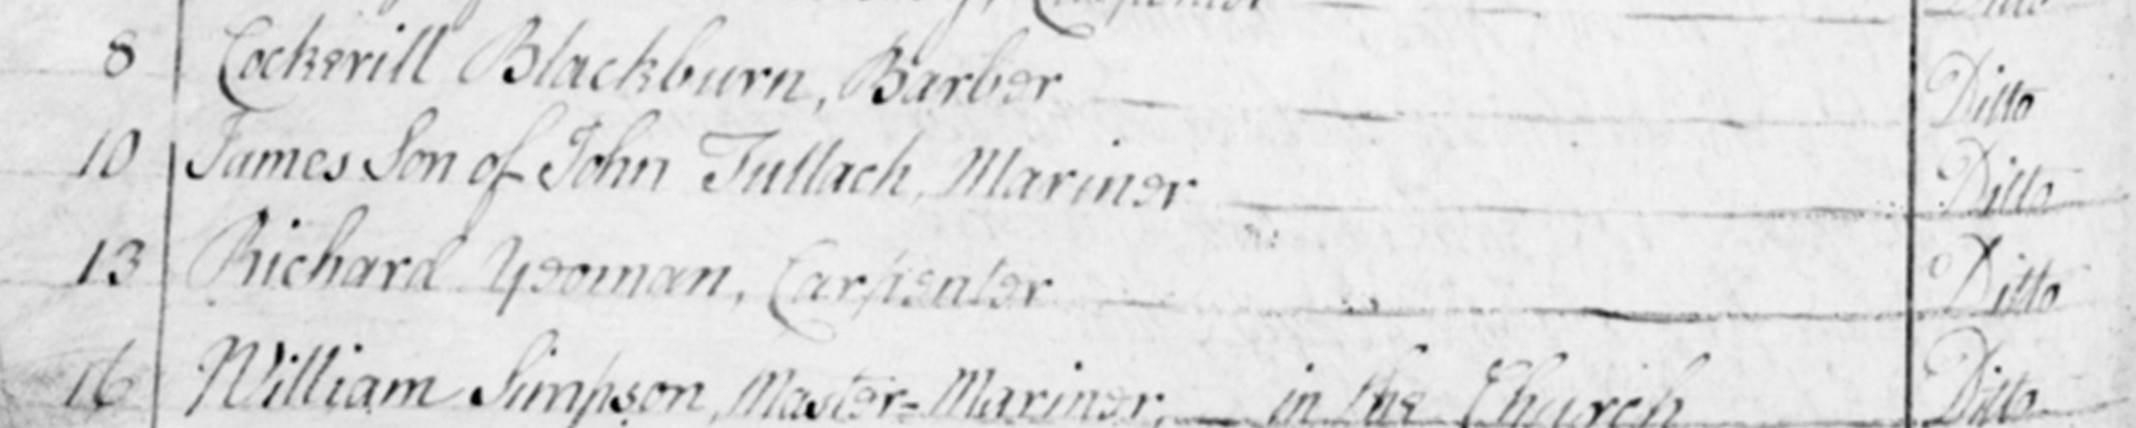 8 Cockerill Blackburn, Barber Ditto
10 James Son of John Tullach, Mariner Ditto
13 Richard Yeoman, Carpenter Ditto
16 William Simpson, Master-Mariner, in the Church Ditto